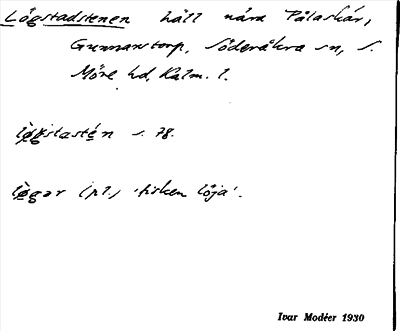 Lögstadstenen häll nära Pålaskär,
Gunnarstorp, Söderåkra sn, S.
Möre hd, Kalm. l.
lø̀gstastén s. 78.
lø̀gər (pl.) 'fisken löja'.
Ivar Modéer 1930